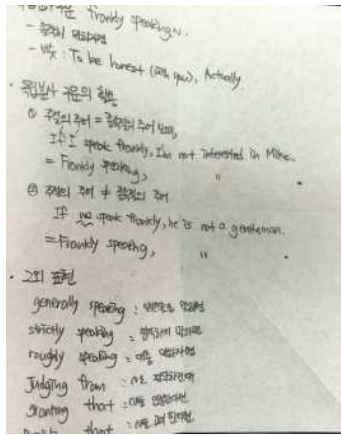 Frankly speaking.
- 솔직히 말하자면
- 비슷 : To be honest (with you), Actually
· 독립분사 구문의 활용
① 주절의 주어 = 종속절의 주어
If I speak frankly, I'm not interested in Mike.
= Frankly speaking, "
② 주절의 주어 ≠ 종속절의 주어
If we speak frankly, he is not a gentleman.
= Frankly speaking, "
· 그외 표현
generally speaking : 일반적으로 말하면
strictly speaking : 엄격하게 말하면
roughly speaking : 대충 말하자면
Judging from : ~로 판단하건대
granting that :
that :